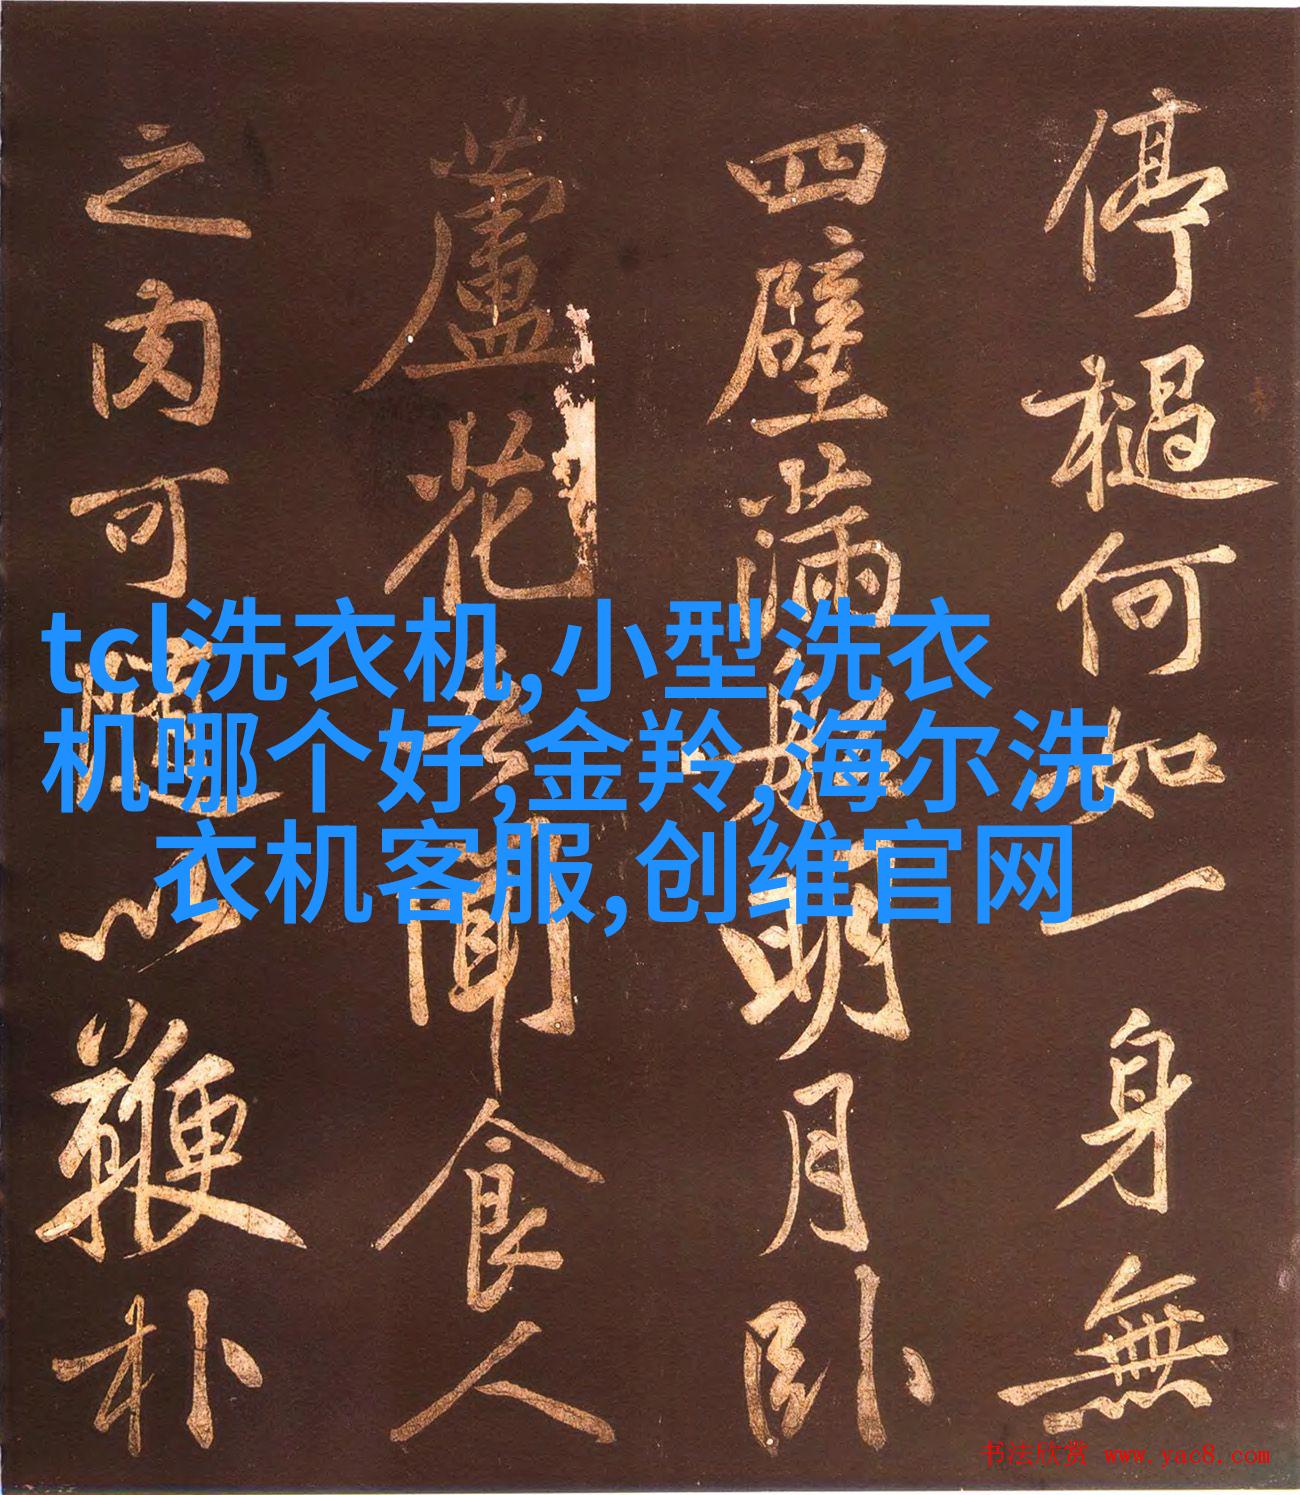 停檛何如一身無
四壁滿船明月卧
蘆花吾聞食人
之肉可隨以鞭朴
tcl洗衣机,小型洗衣
机哪个好,金羚,海尔洗
衣机客服,创维官网
书法欣赏 www.yac8.com